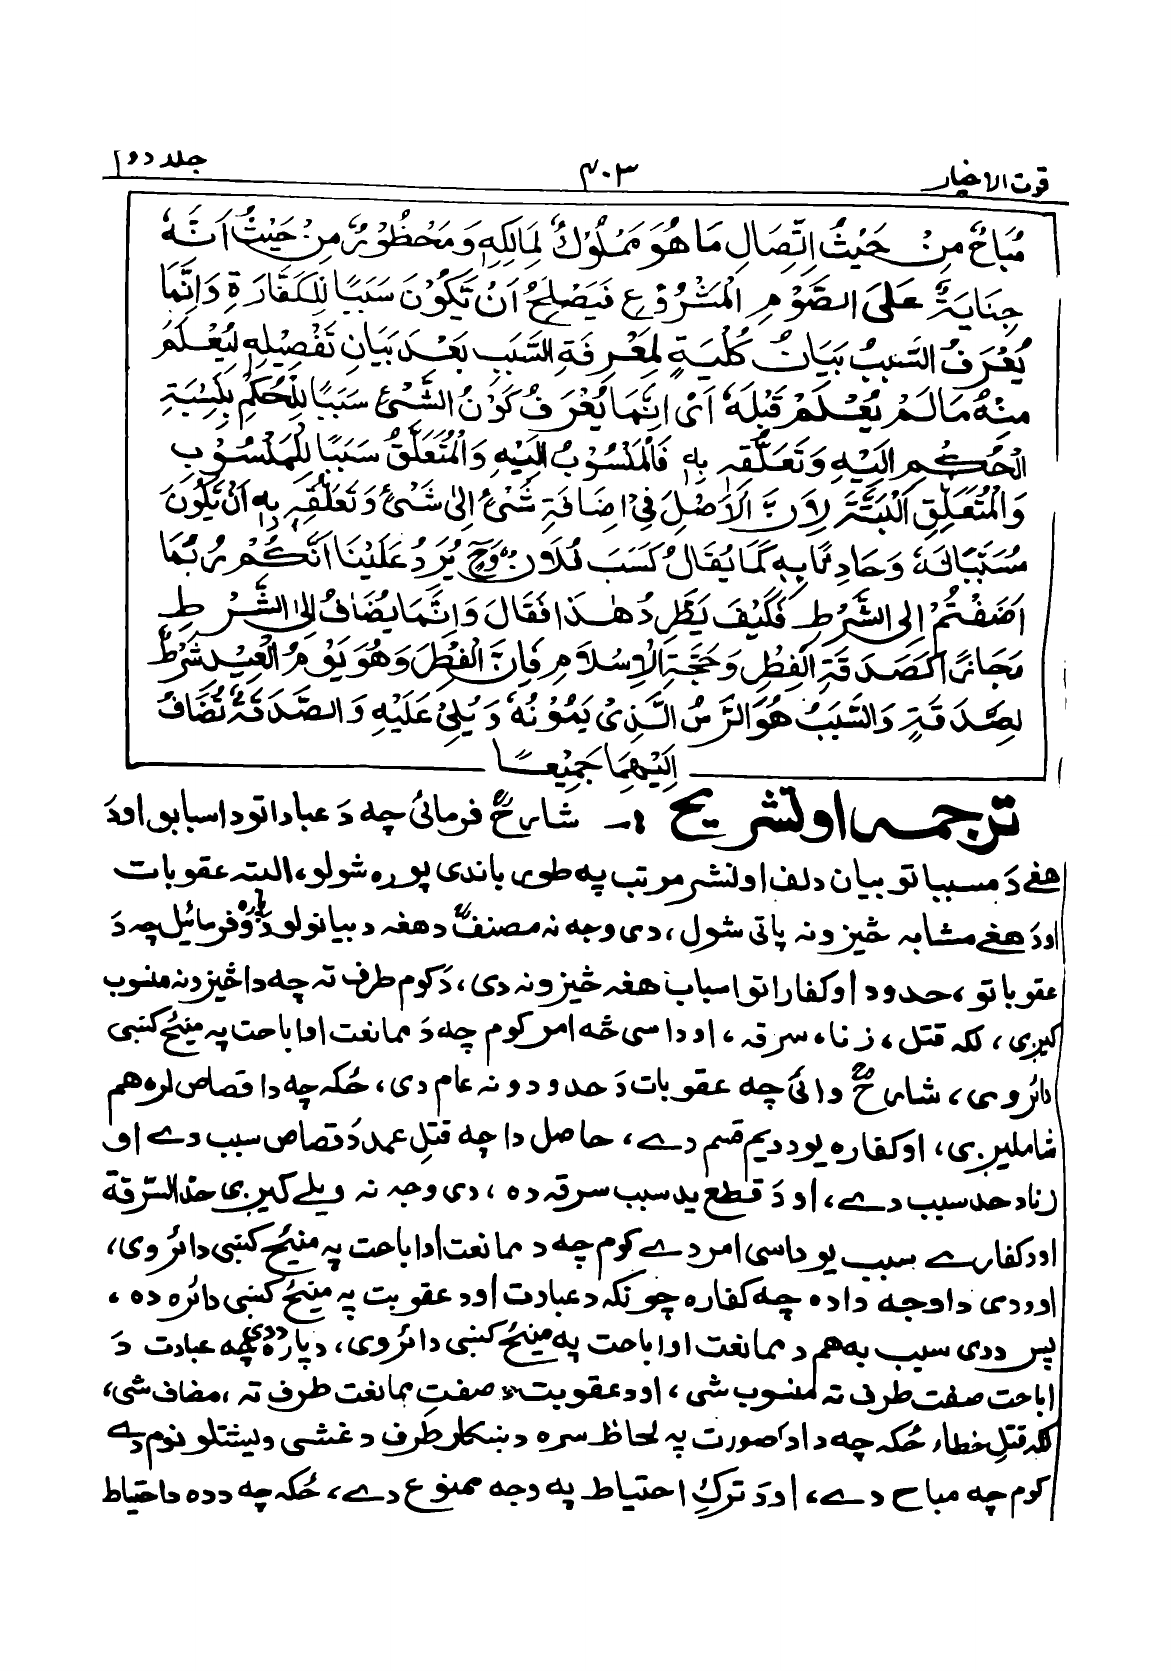 قوت الاخیار ۴۰۳ جلد دوم
مُبَاحٌ مِنْ حَيْثُ اِتِّصَالِ مَا هُوَ مَمْلُوْكٌ لِمَالِكِهٖ وَمَحْظُوْرٌ مِنْ حَيْثُ اَنَّهٗ
جِنَايَةٌ عَلَى الصَّوْمِ الْمَشْرُوْعِ فَيَصْلِحُ اَنْ تَكُوْنَ سَبَبًا لِلْكَفَّارَةِ وَاِنَّمَا
يُعْرَفُ السَّبَبُ بَيَانٌ كُلِّيَةٍ لِمَعْرِفَةِ السَّبَبِ بَعْدَ بَيَانِ تَفْصِيْلِهٖ لِيُعْلَمَ
مِنْهُ مَا لَمْ يُعْلَمْ قَبْلَهٗ اَیْ اِنَّمَا يُعْرَفُ كَوْنُ الشَّیْءِ سَبَبًا لِلْحُكْمِ بِنِسْبَةِ
الْحُكْمِ اِلَيْهِ وَتَعَلُّقِهٖ بِهٖ فَالْمَنْسُوْبُ اِلَيْهِ وَالْمُتَعَلَّقُ سَبَبًا لِلْمَنْسُوْبِ
وَالْمُتَعَلِّقِ اَلْبَتَّةَ لِاَنَّ الْاَصْلَ فِیْ اِضَافَةِ شَیْءٍ اِلٰی شَیْءٍ وَتَعَلُّقِهٖ بِهٖ اَنْ يَّكُوْنَ
مُسَبَّبًا لَهٗ وَحَادِثًا بِهٖ كَمَا يُقَالُ كَسَبَ فُلَانٌ وَحٍ يُرَدُ عَلَيْنَا اَنَّكُمْ رُبَمَا
اَضَفْتُمْ اِلَى الشَّرْطِ فَكَيْفَ يَطَّرِدُ هٰذَا فَقَالَ وَاِنَّمَا يُضَافُ اِلَى الشَّرْطِ
مَجَازًا كَصَدَقَةِ الْفِطْرِ وَحَجَّةِ الْاِسْلَامِ فَاِنَّ الْفِطْرَ وَهُوَ يَوْمُ الْعِيْدِ شَرْطٌ
لِصَدَقَةٍ وَالسَّبَبُ هُوَ الرَّأْسُ الَّذِیْ يَمُوْنُهٗ وَيَلِیْ عَلَيْهِ وَالصَّدَقَةُ تُضَافُ
اِلَيْهِمَا جَمِيْعًا
ترجمه او تشریح :- شارحؒ فرمائی چه دَ عباداتو د اسبابو اودَ
هغے دَ مسبباتو بیان د لف او نشر مرتب په طوری باندی پوره شولو، البته عقوبات
اودَ هغے مشابه څیزونه پاتی شول، دی وجه نه مصنفؒ دهغه د بیانولو دَپاره وَفرمائیل چه دَ
عقوباتو، حدود او کفاراتو اسباب هغه څیزونه دی، دَ کوم طرف ته چه دا څیزونه منسوب
کیږی، لکه قتل، زنا، سرقه، او داسی څه امر کوم چه دَ ممانعت او اباحت په منیځ کښی
دائر وی، شارحؒ وائی چه عقوبات دَ حدودو نه عام دی، ځکه چه دا قصاص لره هم
شاملیږی، او کفاره یو دریم قسم دے، حاصل دا چه قتلِ عمد دَ قصاص سبب دے او
زنا د حد سبب دے، او دَ قطع ید سبب سرقه ده، دی وجه نه ویلے کیږی حدّ السّرقة
اود کفارے سبب یو داسی امر دے کوم چه د ممانعت او اباحت په منیځ کښی دائر وی،
اوددی دا وجه ده چه کفاره چونکه د عبادت اود عقوبت په منیځ کښی دائره ده،
پس ددی سبب به هم د ممانعت او اباحت په منیځ کښی دائر وی، دپاره ددی چه عبادت دَ
اباحت صفت طرف ته منسوب شی، اود عقوبت صفتِ ممانعت طرف ته، مضاف شی،
لکه قتلِ خطاء ځکه چه دا دَ صورت په لحاظ سره د ښکار طرف د غشی ویشتلو نوم دے
کوم چه مباح دے، اودَ ترکِ احتیاط په وجه ممنوع دے، ځکه چه دده د احتیاط